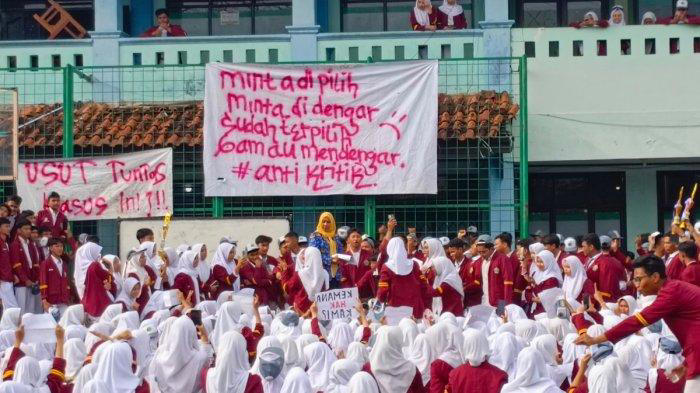 minta di pilih
minta di dengar
sudah terpilih
Gam du mendengar.
# anti kritik.
USUT TUNTAS
KASUS INI !!!
KEMANA
HAK
KAMI